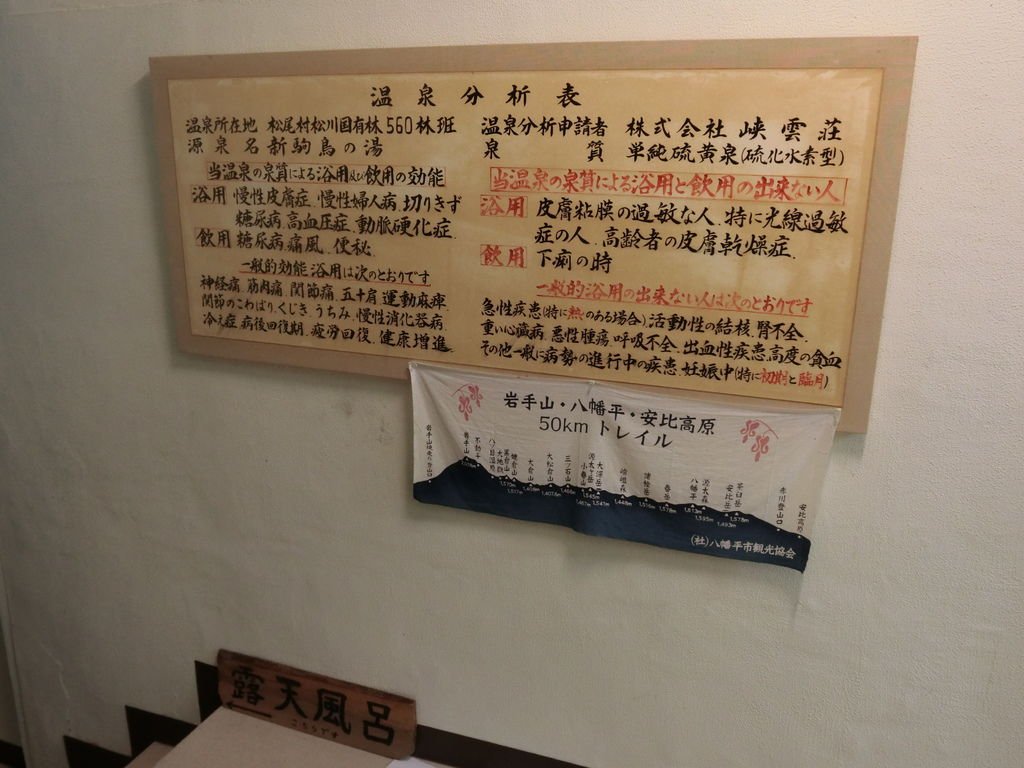 温泉分析表
温泉所在地 松尾村松川国有林560林班
源泉名 新駒鳥の湯
当温泉の泉質による浴用及び飲用の効能
浴用 慢性皮膚症.慢性婦人病.切りきず
糖尿病.高血圧症.動脈硬化症.
飲用 糖尿病.痛風.便秘.
一般的効能 浴用は次のとおりです
神経痛.筋肉痛.関節痛.五十肩.運動麻痺.
関節のこわばり.くじき.うちみ.慢性消化器病.
冷え症.病後回復期.疲労回復.健康増進.
温泉分析申請者 株式会社 峡雲荘
泉質 単純硫黄泉(硫化水素型)
当温泉の泉質による浴用と飲用の出来ない人
浴用 皮膚粘膜の過敏な人.特に光線過敏
症の人.高齢者の皮膚乾燥症.
飲用 下痢の時
一般的浴用の出来ない人は次のとおりです
急性疾患(特に熱のある場合).活動性の結核.腎不全.
重い心臓病.悪性腫瘍.呼吸不全.出血性疾患.高度の貧血
その他一般に病勢の進行中の疾患.妊娠中(特に初期と臨月)
岩手山・八幡平・安比高原
50kmトレイル
岩手山
不動平
大地獄
黒倉山
1,570m
1,517m
大倉山
1,408m
大松倉山
1,407.6m
三ツ石山
1,466m
小畚山
1,467m
大深岳
1,541m
嶮岨森
1,448m
諸桧岳
1,516m
畚岳
1,578m
八幡平
1,613m
源太森
1,595m
安比岳
1,493m
茶臼岳
1,578m
赤川登山口
安比高原
(社)八幡平市観光協会
露天風呂
こちらです